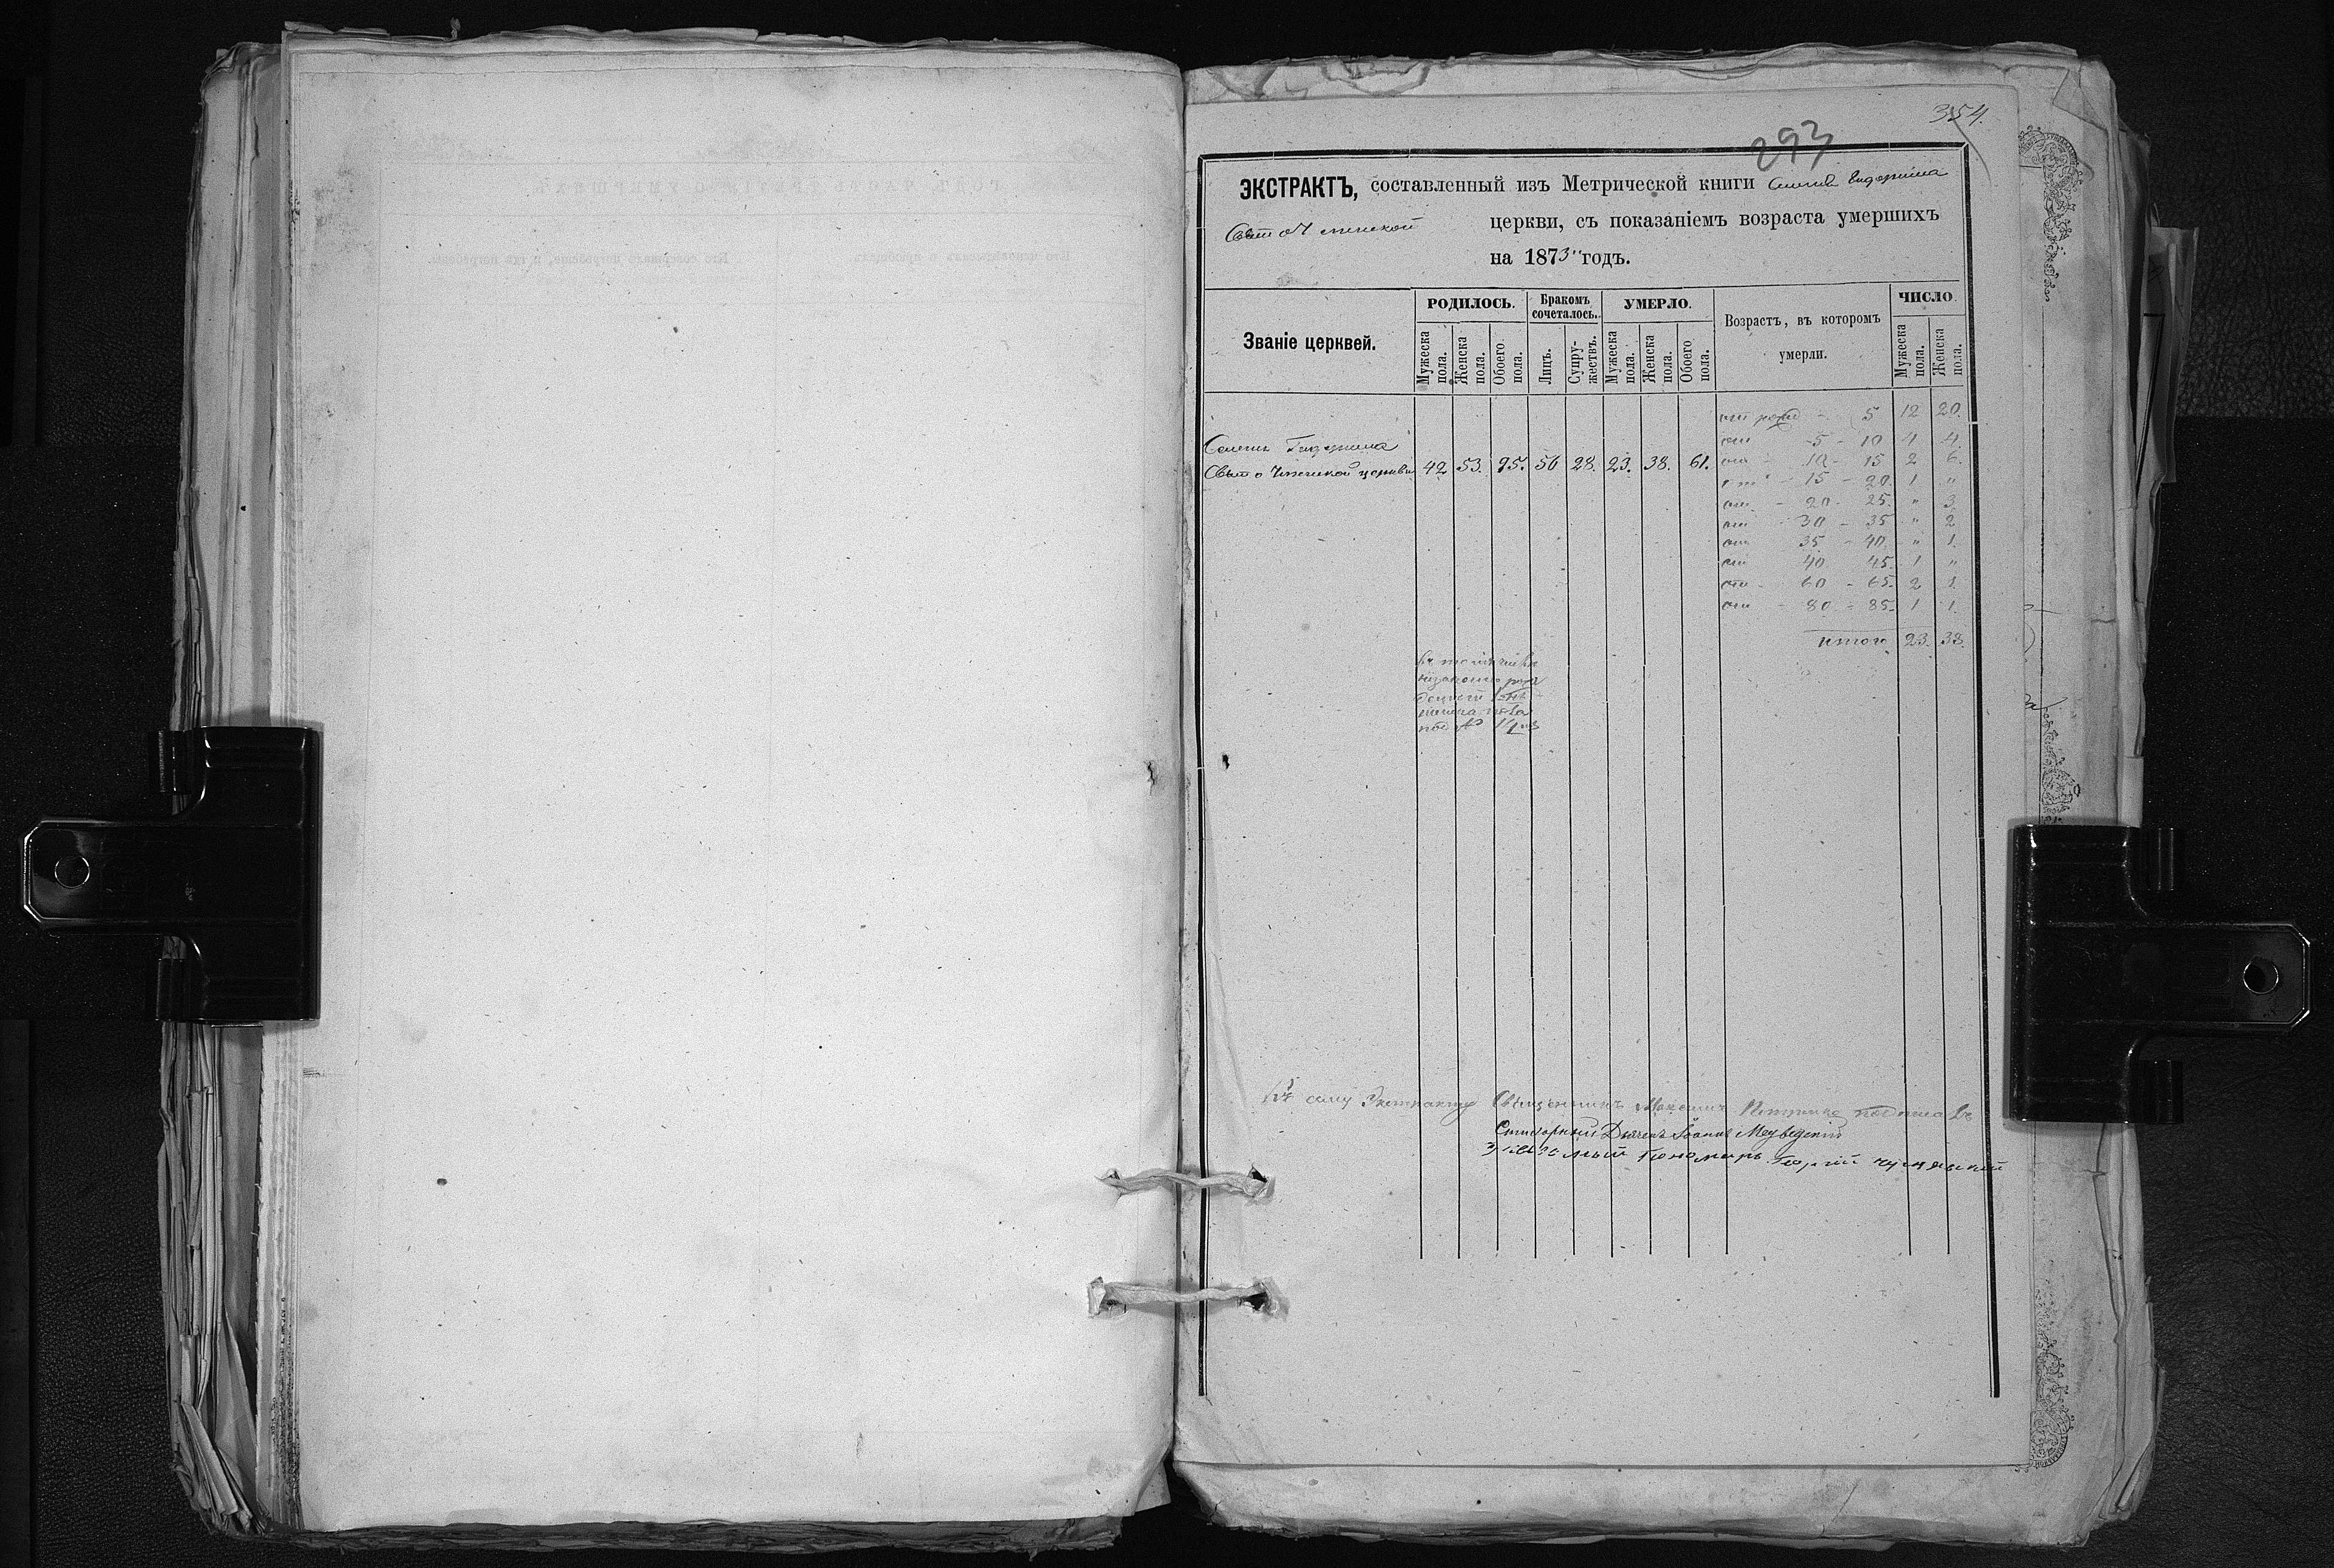 354.
293
ЭКСТРАКТЪ, составленный изъ Метрической книги
церкви, съ показаніемъ возраста умершихъ
на 1873 годъ.
Званіе церквей.
РОДИЛОСЬ.
Мужеска пола.
Женска пола.
Обоего пола.
Бракомъ сочеталось.
Лицъ.
Супружествъ.
УМЕРЛО.
Мужеска пола.
Женска пола.
Обоего пола.
Возрастъ, въ которомъ умерли.
ЧИСЛО.
Мужеска пола.
Женска пола.
церкви 42 53. 95. 56 28. 23. 38. 61.
от рожд - 5 12 20.
от 5 - 10 4 4.
от 10 - 15 2 6.
от - 15 - 20. 1 "
от - 20 - 25. " 3.
от 30 - 35 " 2
от 35 - 40. " 1.
от 40 45. 1 "
от - 60 - 65. 2 1.
от - 80 - 85. 1 1.
итого 23. 38.
незаконно рож
под № 14
Къ сему Экстракту Священникъ подписавъ
Іоаннъ Медведскій
Пономарь Георгій